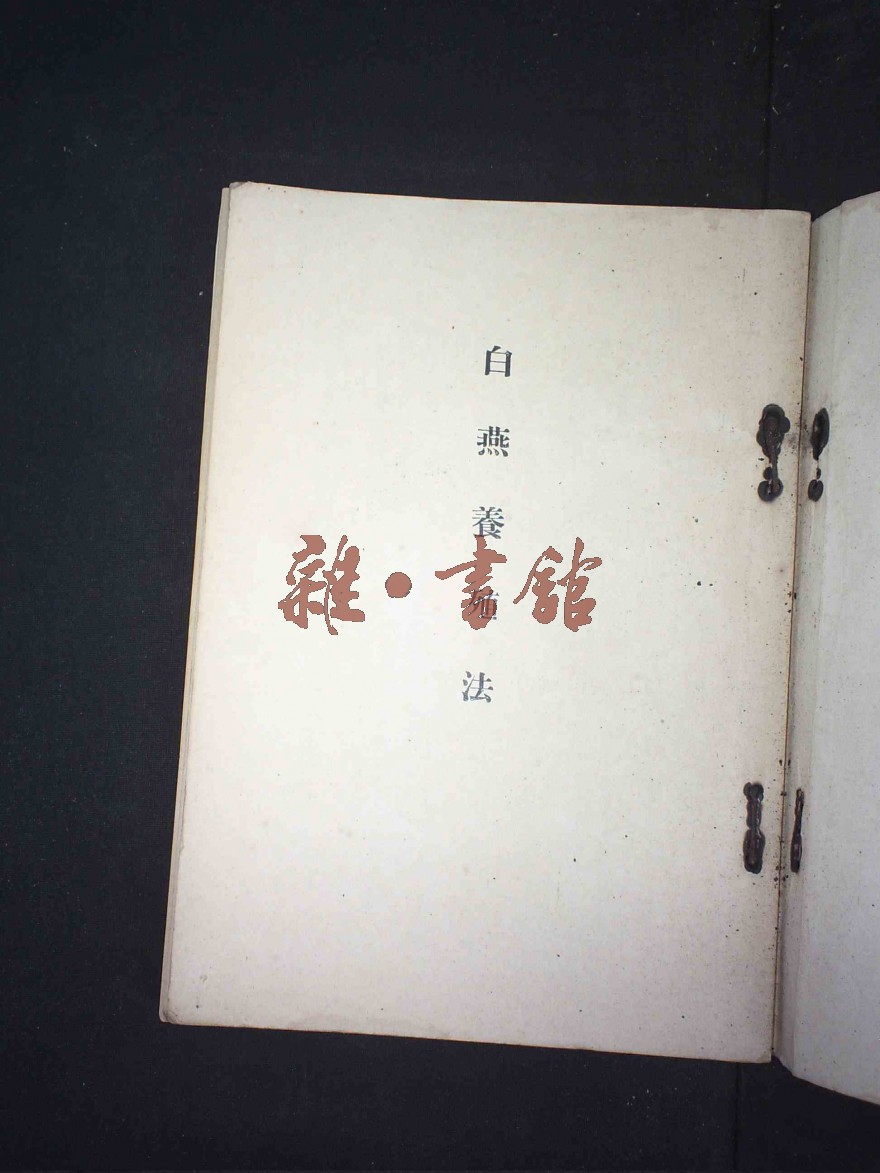 白燕養殖法
雜·書館